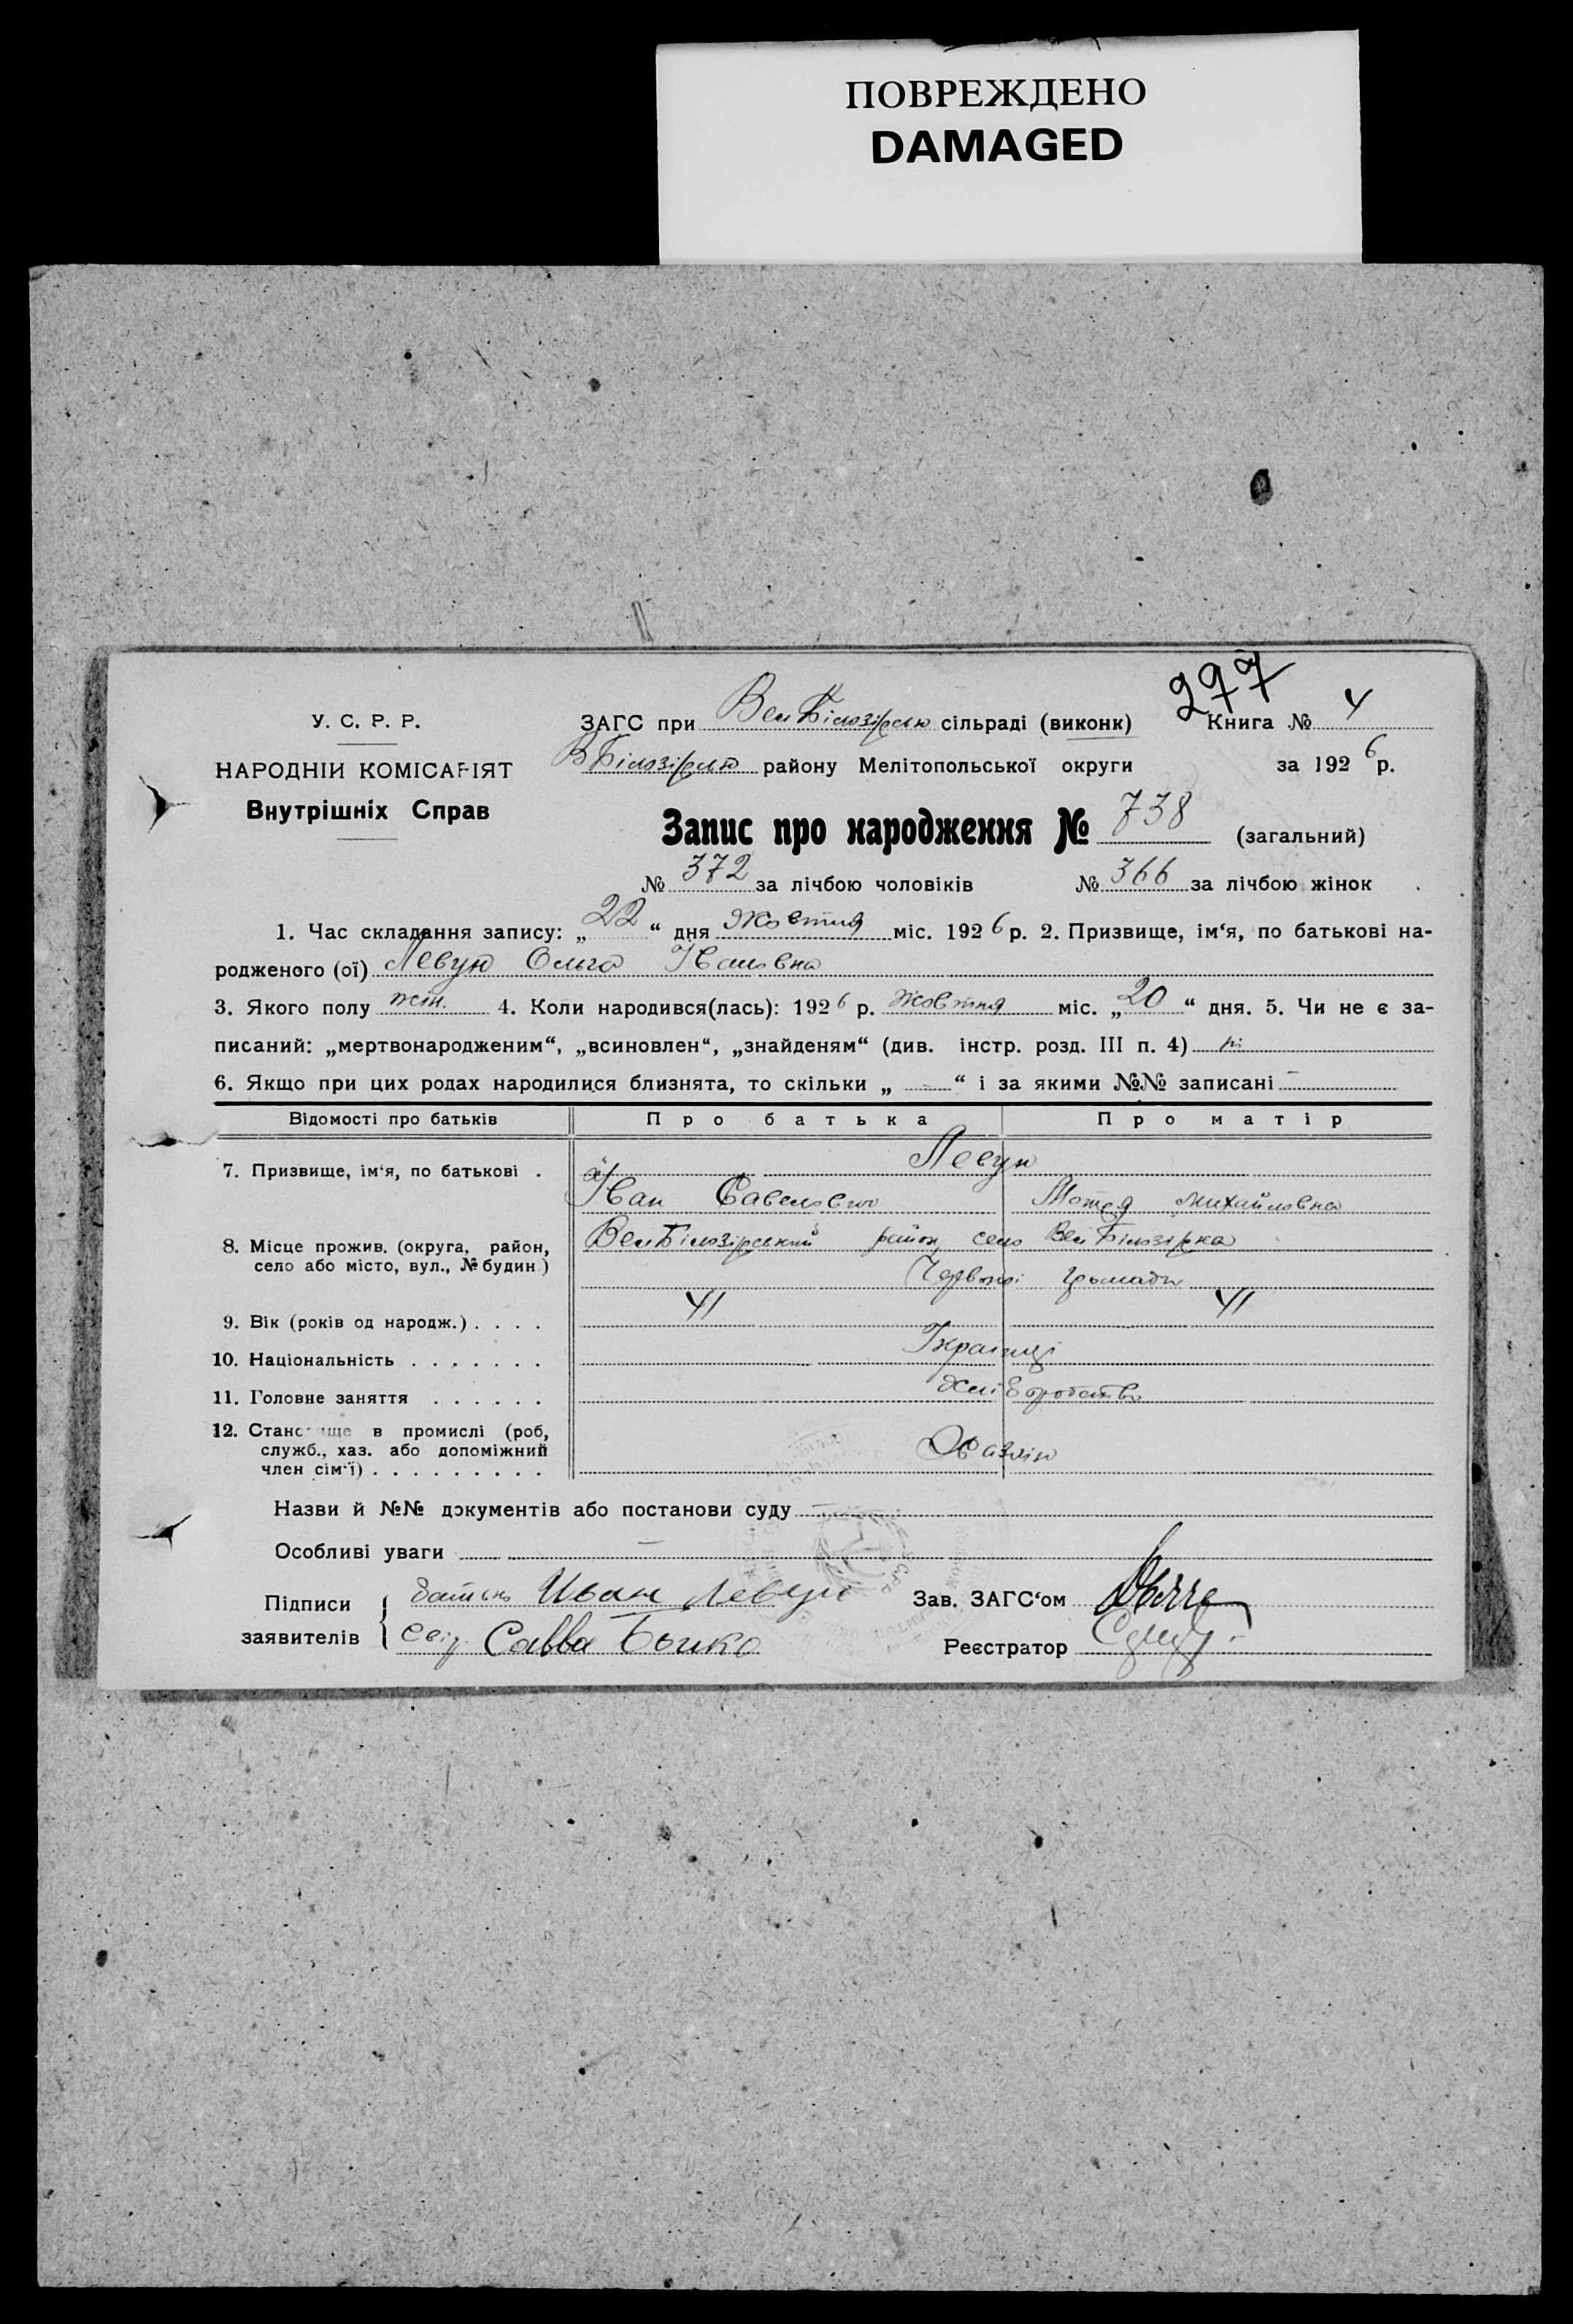 ПОВРЕЖДЕНО
DAMAGED
297
У. С. Р. Р.
НАРОДНІЙ КОМІСАРІЯТ
Внутрішніх Справ
ЗАГС при ВелБілозірськ сільраді (виконк) Книга № 4
ВБілозірськ району Мелітопольської округи за 1926 р.
Запис про народження № 738 (загальний)
№ 372 за лічбою чоловіків № 366 за лічбою жінок
1. Час складання запису: „22“ дня Жовтня міс. 1926 р. 2. Призвище, ім‘я, по батькові на-
родженого (ої) Левун Ольга Івановна
3. Якого полу жін. 4. Коли народився(лась): 1926 р. жовтня міс. „20“ дня. 5. Чи не є за-
писаний: „мертвонародженим“, „всиновлен“, „знайденям“ (див. інстр. розд. III п. 4) ні
6. Якщо при цих родах народилися близнята, то скільки „ — “ і за якими №№ записані —
Відомості про батьків Про батька Про матір
7. Призвище, ім‘я, по батькові . Левун
Іван Савелович Мотя Михайловна
8. Місце прожив. (округа, район, село або місто, вул., № будин.) ВелБілозірський район, село ВелБілозірка
Червоної громади
9. Вік (років од народж.) . . . . 41 41
10. Національність . . . . . . . Українці
11. Головне заняття . . . . . . хліборобство
12. Становище в промислі (роб,
служб., хаз. або допоміжний
член сім‘ї) . . . . . . . . .
Назви й №№ документів або постанови суду
Особливі уваги —
Підписи заявителів { батько Иван Левун Зав. ЗАГС‘ом
свід. Савва Бочко Реєстратор